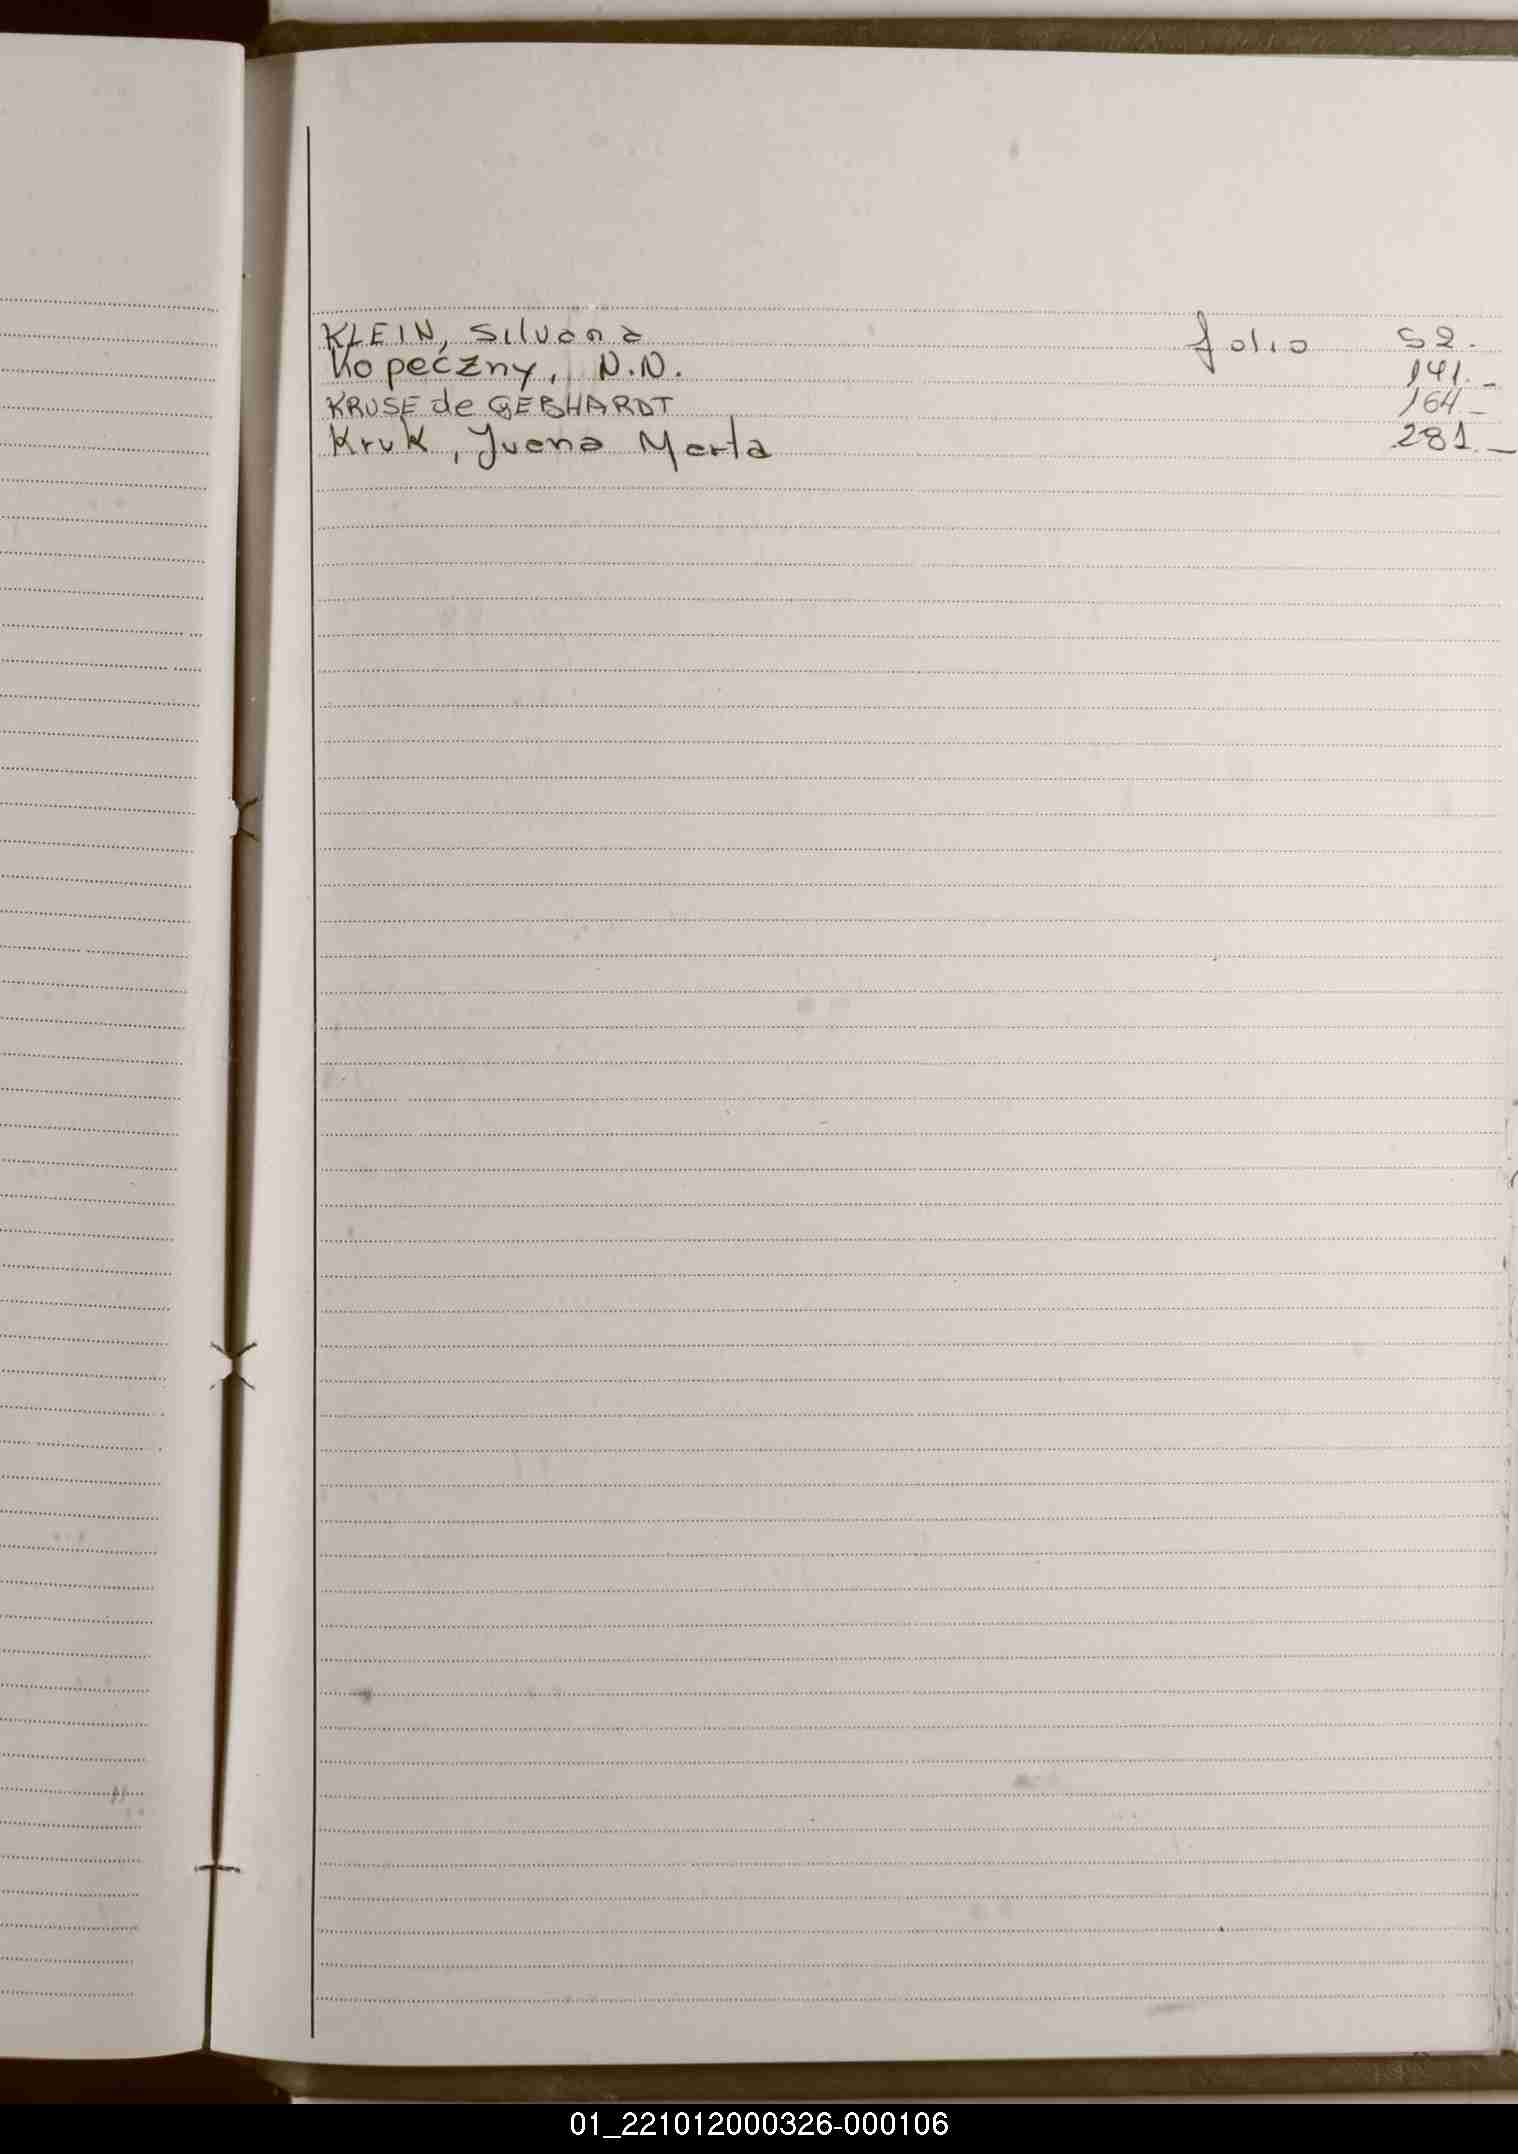 KLEIN, Silvana folio 52.
Kopeczny, N.N. 141.-
KRUSE de GEBHARDT 164-
Kruk, Juana Marta 281.-
01_221012000326-000106